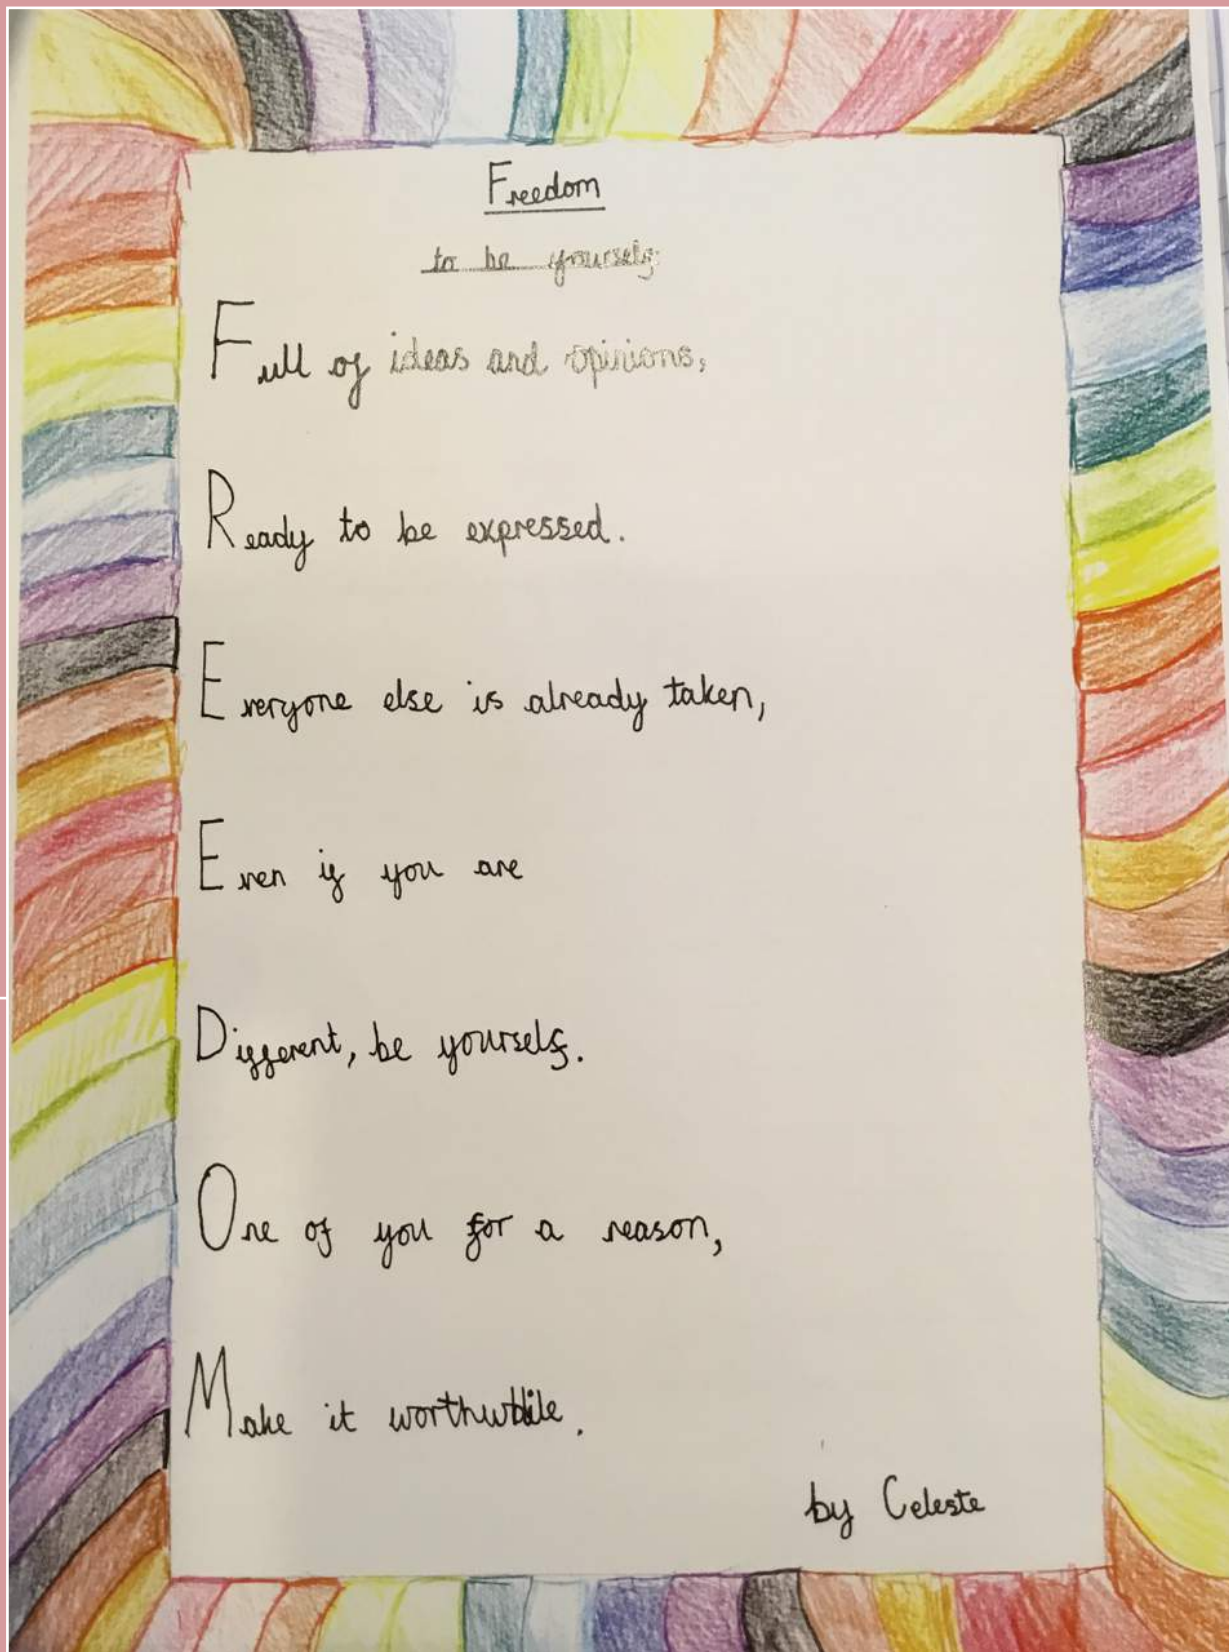 Freedom
to be yourself:
Full of ideas and opinions,
Ready to be expressed.
Everyone else is already taken,
Even if you are
Different, be yourself.
One of you for a reason,
Make it worthwhile.
by Celeste